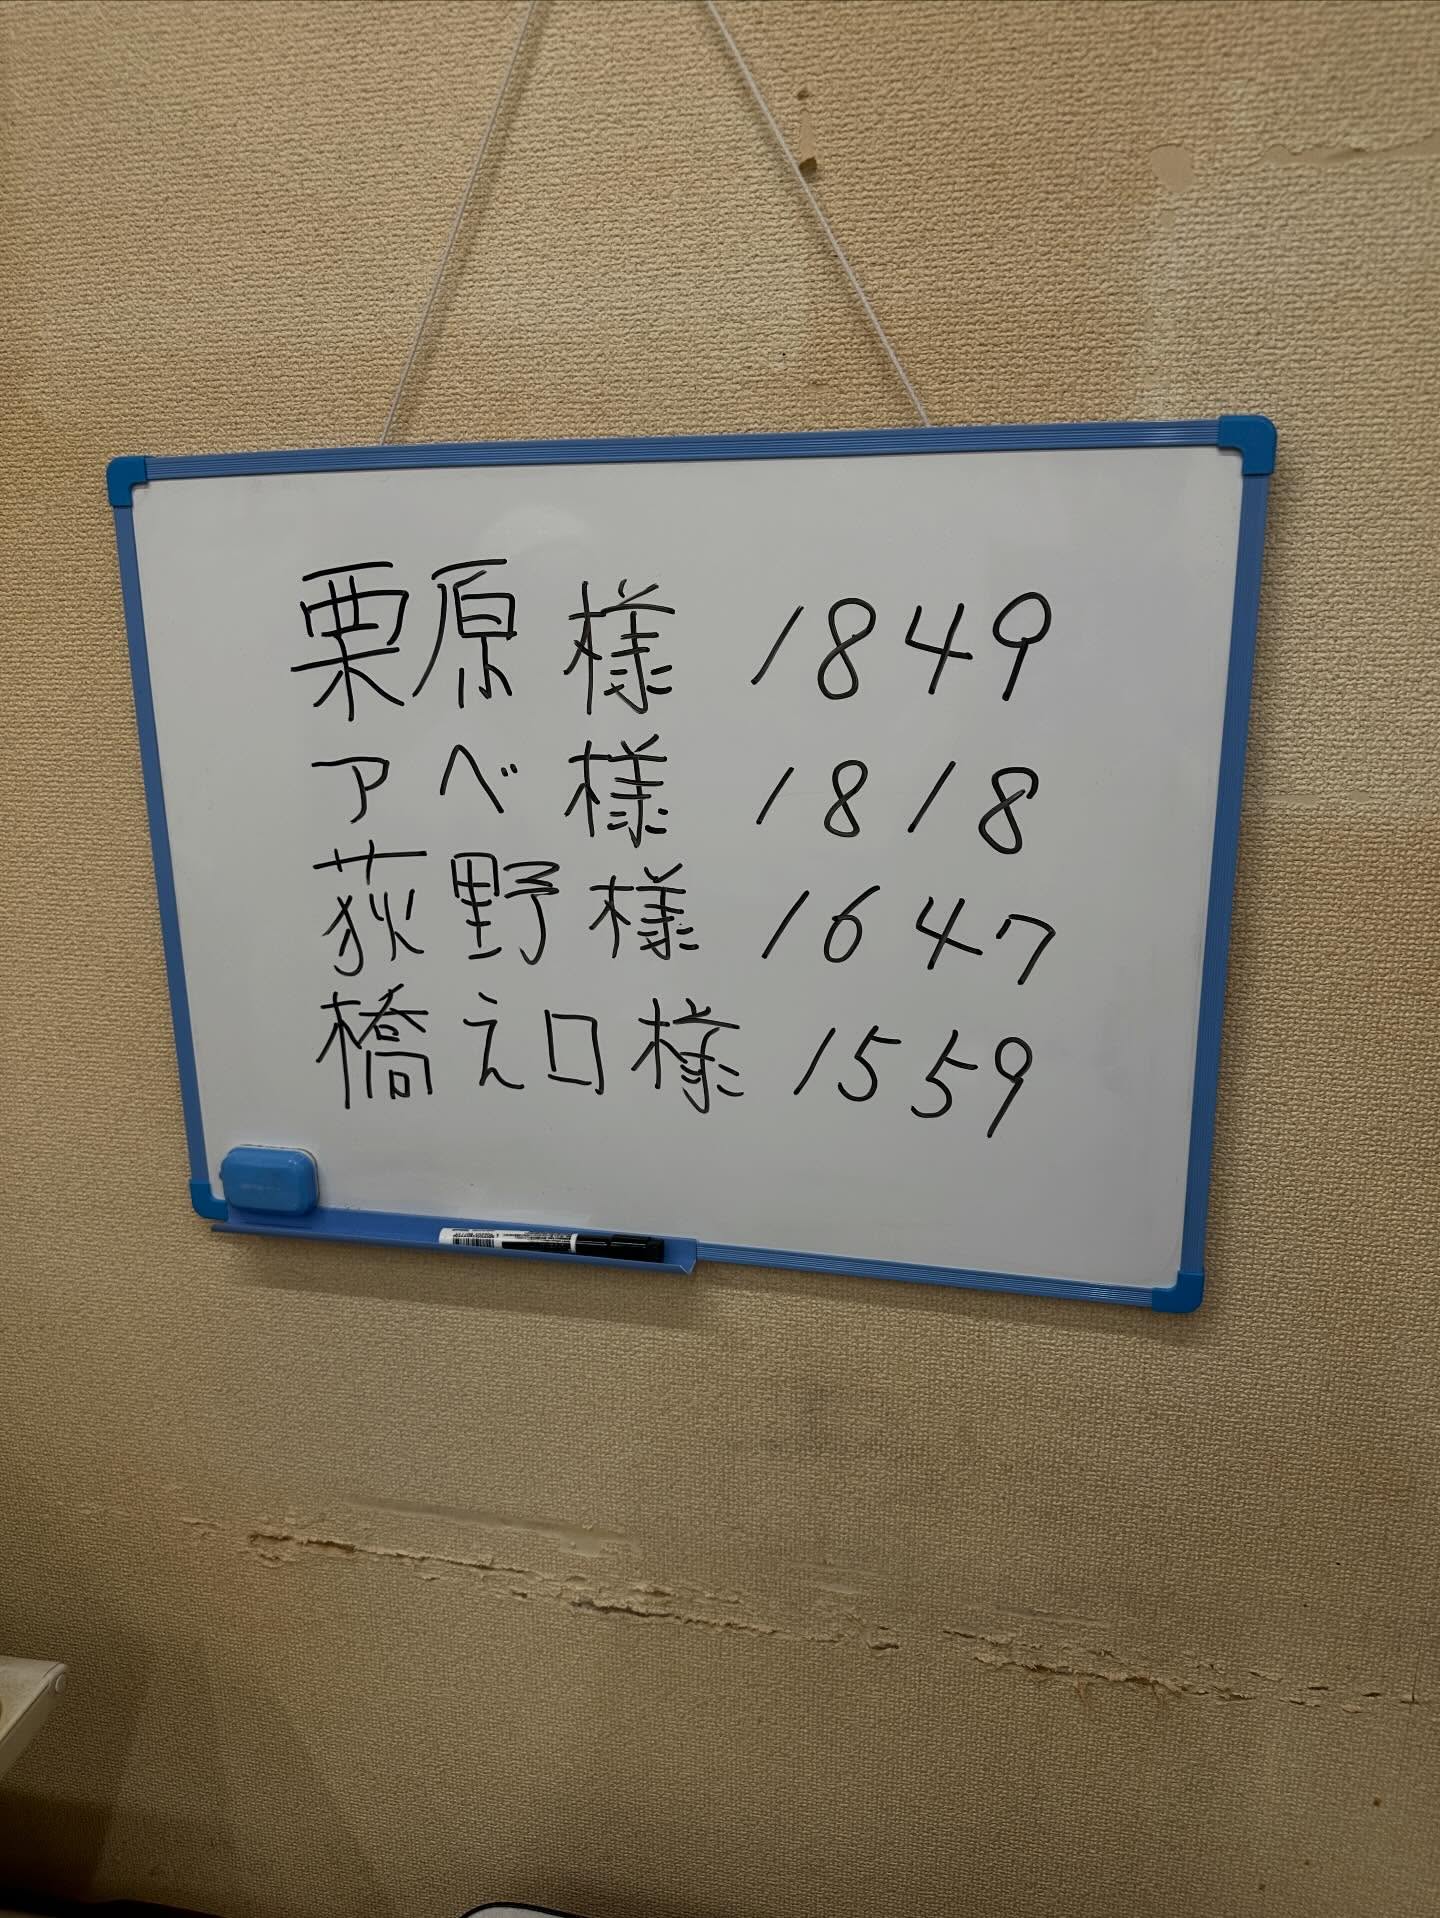 栗原様 1849
アベ様 1818
荻野様 1647
橋え口様 1559